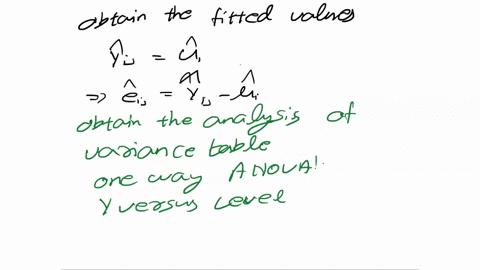 obtain the fitted values
Ŷij = û̂i
=> êij = Ŷij - û̂i
obtain the analysis of
variance table
one way ANOVA!
Y versus Level